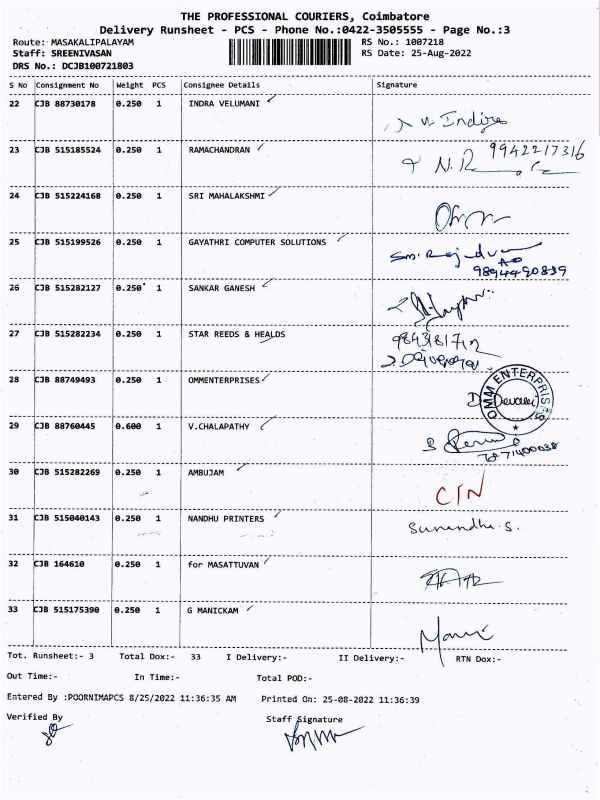 THE PROFESSIONAL COURIERS, Coimbatore
Delivery Runsheet - PCS - Phone No.:0422-3505555 - Page No.:3
Route: MASAKALIPALAYAM RS No.: 1007218
Staff: SREENIVASAN RS Date: 25-Aug-2022
DRS No.: DCJB100721803
S No Consignment No Weight PCS Consignee Details Signature
22 CJB 88730178 0.250 1 INDRA VELUMANI
23 CJB 515185524 0.250 1 RAMACHANDRAN 9942217316
24 CJB 515224168 0.250 1 SRI MAHALAKSHMI
25 CJB 515199526 0.250 1 GAYATHRI COMPUTER SOLUTIONS
9894490839
26 CJB 515282127 0.250 1 SANKAR GANESH
27 CJB 515282234 0.250 1 STAR REEDS & HEALDS
28 CJB 88749493 0.250 1 OMMENTERPRISES OMM ENTERPRISES
29 CJB 88760445 0.600 1 V.CHALAPATHY
30 CJB 515282269 0.250 1 AMBUJAM CIN
31 CJB 515040143 0.250 1 NANDHU PRINTERS
32 CJB 164610 0.250 1 for MASATTUVAN
33 CJB 515175390 0.250 1 G MANICKAM
Tot. Runsheet:- 3 Total Dox:- 33 I Delivery:- II Delivery:- RTN Dox:-
Out Time:- In Time:- Total POD:-
Entered By :POORNIMAPCS 8/25/2022 11:36:35 AM Printed On: 25-08-2022 11:36:39
Verified By Staff Signature